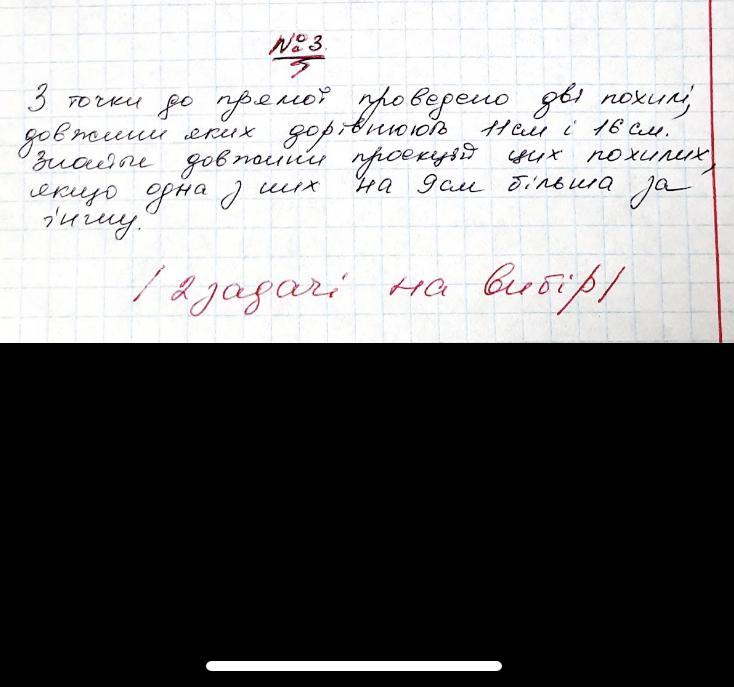 №3.
З точки до прямої проведено дві похилі,
довжини яких дорівнюють 11см і 16см.
Знайти довжини проєкцій цих похилих,
якщо одна з них на 9см більша за
іншу.
/ 2 задачі на вибір /